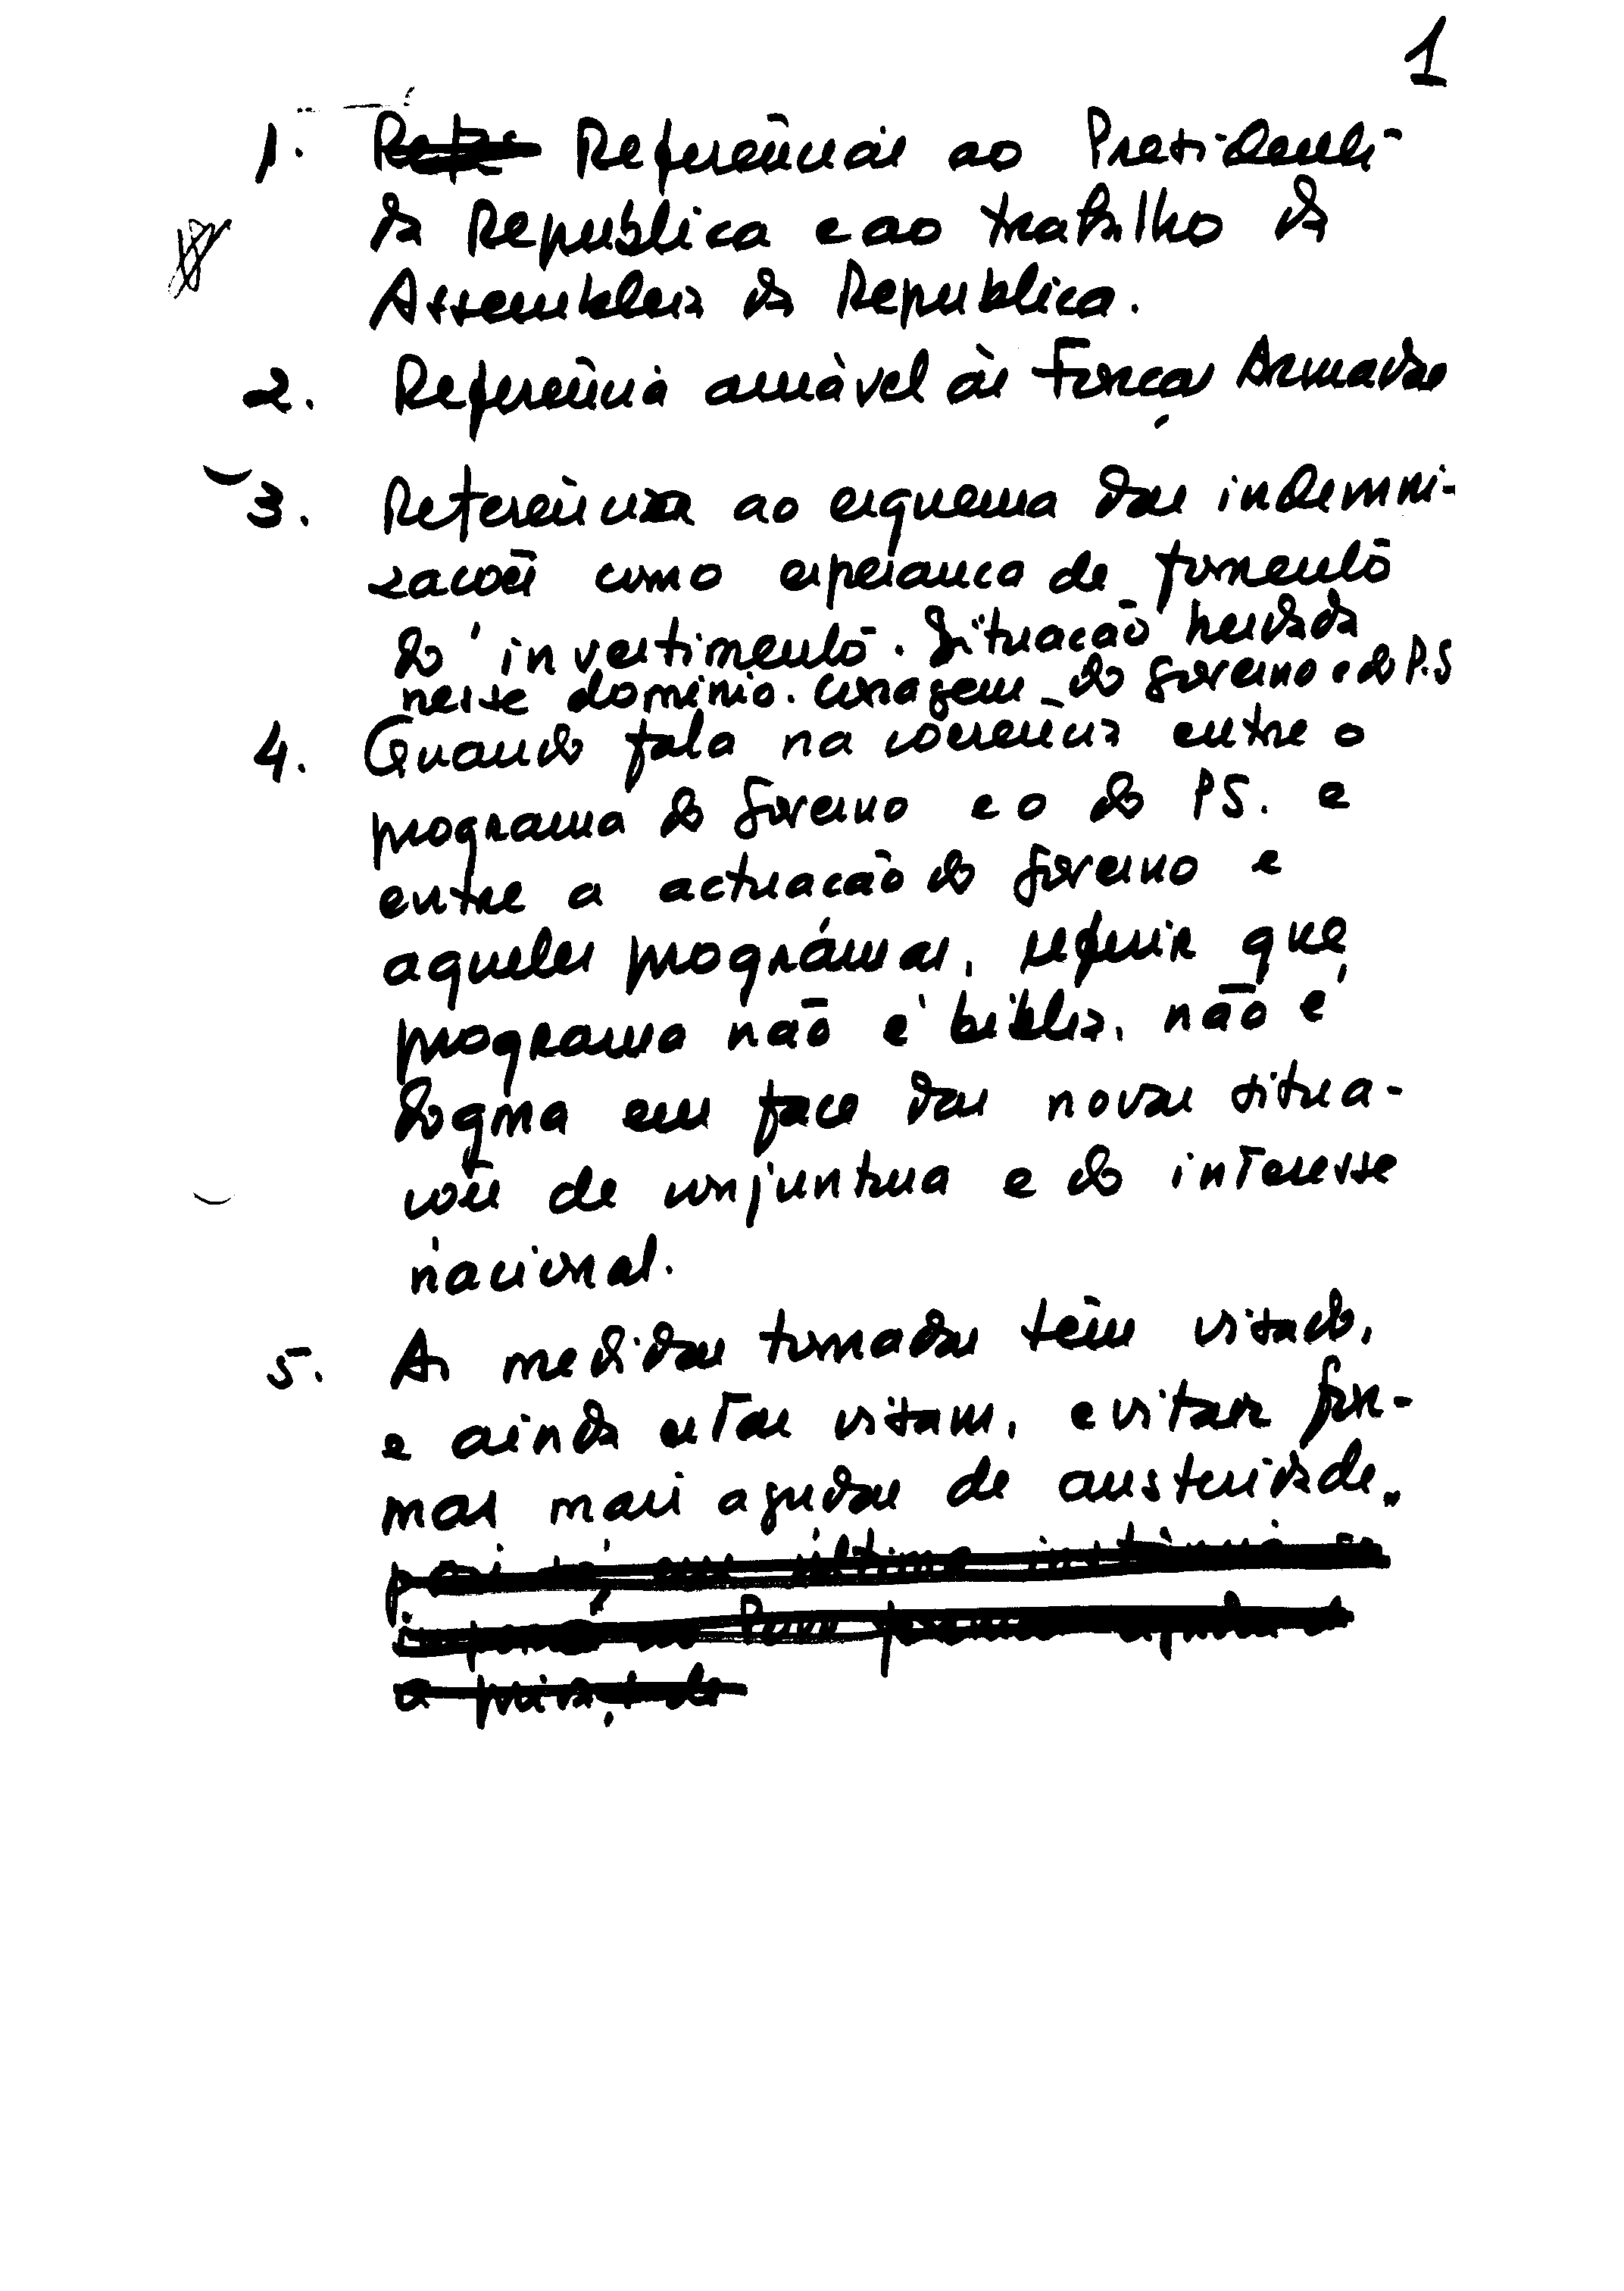 1
1. Referências ao Presidente
da Republica e ao trabalho da
Assembleia da Republica.
2. Referência amável às Forças Armadas
3. Referência ao esquema das indemni-
zacões como esperanca de fomento
do investimento. Situacão herdada
nesse dominio. Coragem do Governo e do P.S
4. Quando fala na coerência entre o
programa do Governo e o do PS. e
entre a actuacão do Governo e
aqueles prográmas, referir que
programa não é biblia, não é
dogma em face das novas situa-
cões de conjuntura e do interesse
nacional.
5. As medidas tomadas têm visado,
e ainda estas visam, evitar for-
mas mais agudas de austeridade.